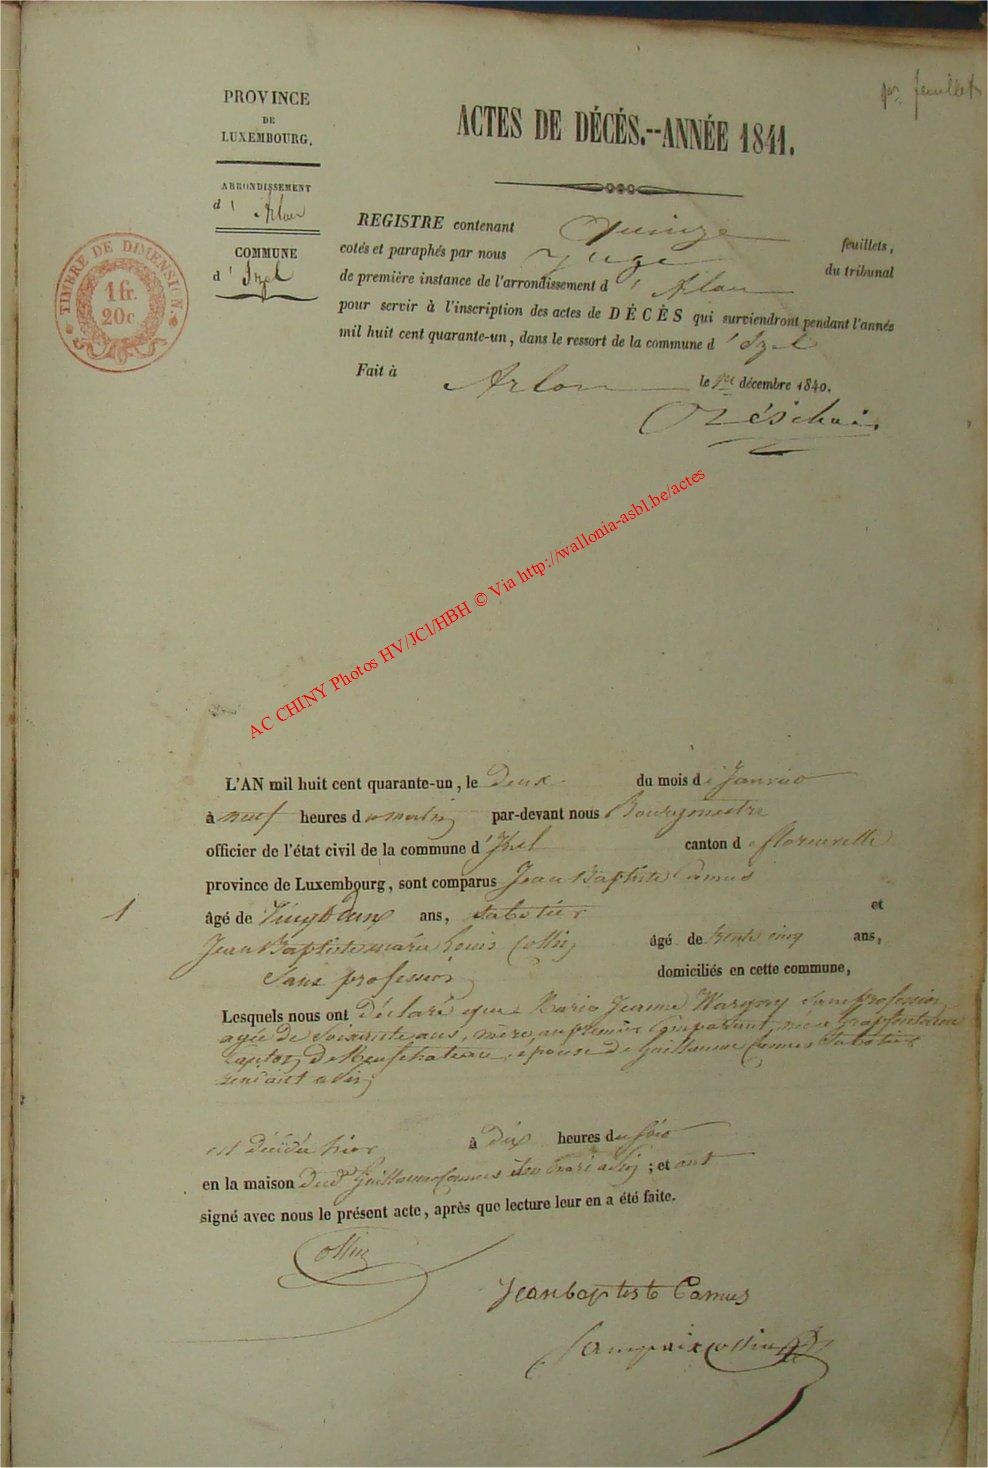 per feuillet
PROVINCE
DE
LUXEMBOURG.
ACTES DE DÉCÉS.--ANNÉE 1841.
ARRONDISSEMENT
d' Arlon
COMMUNE
d' Izel
TIMBRE DE DIMENSION.
1 fr.
20c.
REGISTRE contenant Quinze feuillets,
cotés et paraphés par nous Juge du tribunal
de première instance de l'arrondissement d' Arlon
pour servir à l'inscription des actes de DÉCÈS qui surviendront pendant l'année
mil huit cent quarante-un, dans le ressort de la commune d' Izel
Fait à Arlon le 1er décembre 1840.
AC CHINY Photos HV/JCl/HBH © Via http://wallonia-asbl.be/actes
L'AN mil huit cent quarante-un, le Deux du mois de Janvier
à neuf heures du matin par-devant nous Bourgmestre
officier de l'état civil de la commune d' Izel canton de florenville
province de Luxembourg, sont comparus Jean Baptiste Camus
1
âgé de Vingt Deux ans, sabotier et
Jean Baptiste marie Louis Collin âgé de trente cinq ans,
Sans profession domiciliés en cette commune,
Lesquels nous ont Déclaré que Marie Jeanne Wargny Sans profession
agée de Soixante ans, mère au premier Comparant, née a Grapfontaine
Canton De Neufchateau, epouse de Guillaume Camus Sabotier
est décédée hier à dix heures du soir
en la maison dud. Guillaume Camus son mari ; et ont
signé avec nous le présent acte, après que lecture leur en a été faite.
Collin
Jean baptiste Camus